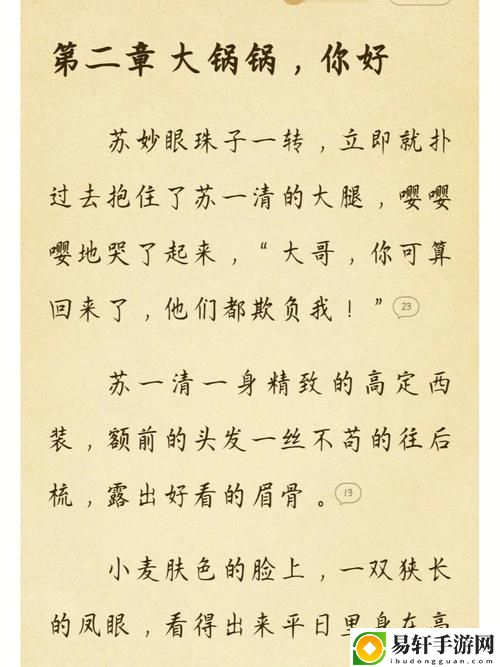 第二章 大锅锅，你好
苏妙眼珠子一转，立即就扑
过去抱住了苏一清的大腿，嘤嘤
嘤地哭了起来，“大哥，你可算
回来了，他们都欺负我！” 23
苏一清一身精致的高定西
装，额前的头发一丝不苟的往后
梳，露出好看的眉骨。 13
小麦肤色的脸上，一双狭长
的凤眼，看得出来平日里身在高
易轩手游网
ibudongguan.com